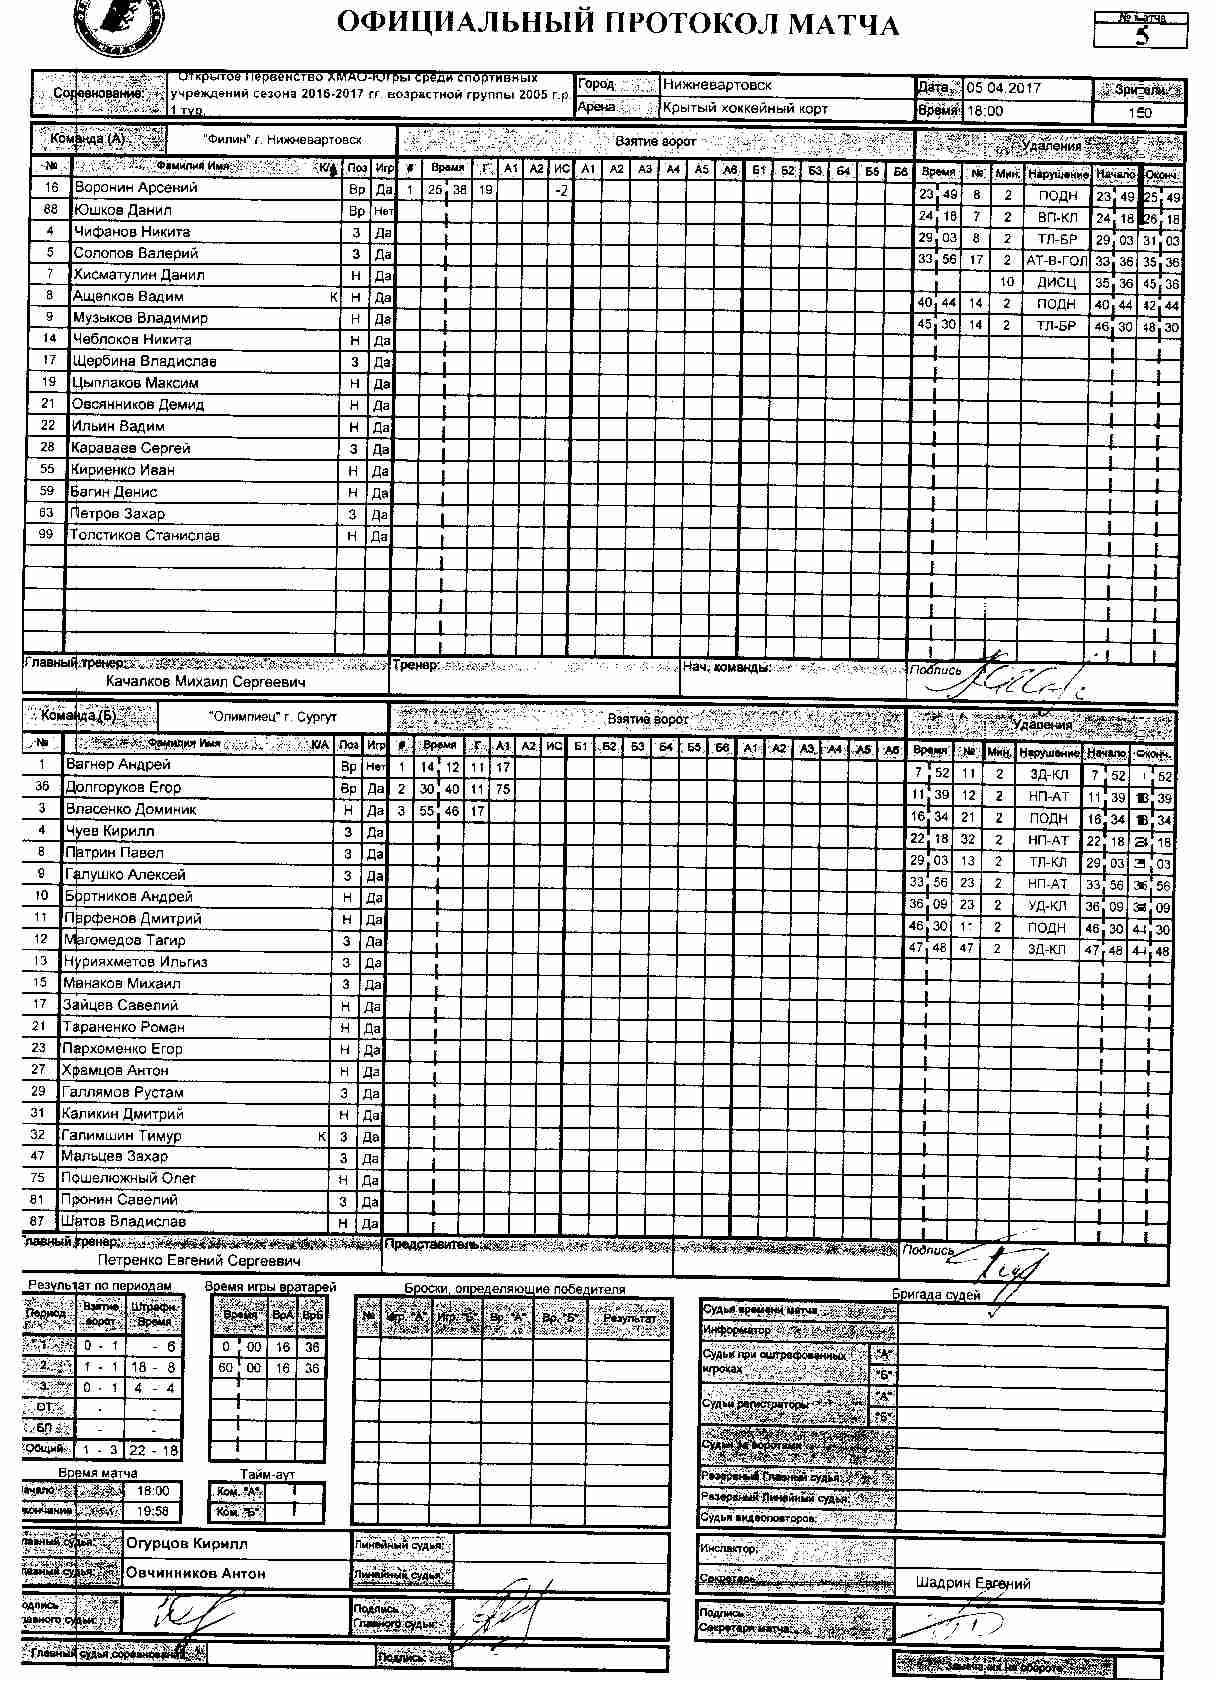 ОФИЦИАЛЬНЫЙ ПРОТОКОЛ МАТЧА
№ матча
5
Соревнование: Открытое Первенство ХМАО-Югры среди спортивных учреждений сезона 2016-2017 гг. возрастной группы 2005 г.р. 1 тур
Город Нижневартовск Дата 05 04.2017 Зрители
Арена Крытый хоккейный корт Время 18:00 150
Команда (А) "Филин" г. Нижневартовск Взятие ворот Удаления
№ Фамилия Имя К/А Поз Игр # Время Г А1 А2 ИС А1 А2 А3 А4 А5 А6 Б1 Б2 Б3 Б4 Б5 Б6 Время № Мин. Нарушение Начало Оконч.
16 Воронин Арсений Вр Да 1 25 38 19 -2 23 49 8 2 ПОДН 23 49 25 49
88 Юшков Данил Вр Нет 24 18 7 2 ВП-КЛ 24 18 26 18
4 Чифанов Никита З Да 29 03 8 2 ТЛ-БР 29 03 31 03
5 Солопов Валерий З Да 33 56 17 2 АТ-В-ГОЛ 33 36 35 36
7 Хисматулин Данил Н Да 10 ДИСЦ 35 36 45 36
8 Ащепков Вадим К Н Да 40 44 14 2 ПОДН 40 44 42 44
9 Музыков Владимир Н Да 45 30 14 2 ТЛ-БР 46 30 48 30
14 Чеблоков Никита Н Да
17 Щербина Владислав З Да
19 Цыплаков Максим Н Да
21 Овсянников Демид Н Да
22 Ильин Вадим Н Да
28 Караваев Сергей З Да
55 Кириенко Иван Н Да
59 Багин Денис Н Да
63 Петров Захар З Да
99 Толстиков Станислав Н Да
Главный тренер: Тренер: Нач. команды: Подпись
Качалков Михаил Сергеевич
Команда (Б) "Олимпиец" г. Сургут Взятие ворот Удаления
№ Фамилия Имя К/А Поз Игр # Время Г А1 А2 ИС Б1 Б2 Б3 Б4 Б5 Б6 А1 А2 А3 А4 А5 А6 Время № Мин. Нарушение Начало Оконч.
1 Вагнер Андрей Вр Нет 1 14 12 11 17 7 52 11 2 ЗД-КЛ 7 52 52
36 Долгоруков Егор Вр Да 2 30 40 11 75 11 39 12 2 НП-АТ 11 39 39
3 Власенко Доминик Н Да 3 55 46 17 16 34 21 2 ПОДН 16 34 34
4 Чуев Кирилл З Да 22 18 32 2 НП-АТ 22 18 18
8 Патрин Павел З Да 29 03 13 2 ТЛ-КЛ 29 03 03
9 Галушко Алексей З Да 33 56 23 2 НП-АТ 33 56 56
10 Бортников Андрей Н Да 36 09 23 2 УД-КЛ 36 09 09
11 Парфенов Дмитрий Н Да 46 30 11 2 ПОДН 46 30 30
12 Магомедов Тагир З Да 47 48 47 2 ЗД-КЛ 47 48 48
13 Нурияхметов Ильгиз З Да
15 Манаков Михаил З Да
17 Зайцев Савелий Н Да
21 Тараненко Роман Н Да
23 Пархоменко Егор Н Да
27 Храмцов Антон Н Да
29 Галлямов Рустам З Да
31 Каликин Дмитрий Н Да
32 Галимшин Тимур К З Да
47 Мальцев Захар З Да
75 Пошелюжный Олег Н Да
81 Пронин Савелий З Да
87 Шатов Владислав Н Да
Главный тренер: Представитель: Подпись
Петренко Евгений Сергеевич
Результат по периодам Время игры вратарей Броски, определяющие победителя Бригада судей
Период Взятие ворот Штрафн. Время Время ВрА ВрБ № Игр. "А" Игр. "Б" Вр. "А" Вр. "Б" Результат
1 0 - 1 - 6 0 00 16 36
2 1 - 1 18 - 8 60 00 16 36
3 0 - 1 4 - 4
ОТ - -
БП - -
Общий 1 - 3 22 - 18
Судья времени матча
Информатор
Судьи при оштрафованных игроках "А" "Б"
Судьи регистраторы "А" "Б"
Судьи за воротами
Резервный Главный судья:
Резервный Линейный судья:
Судья видеоповторов:
Время матча Тайм-аут
Начало 18:00 Ком. "А"
Окончание 19:58 Ком. "Б"
Главный судья: Огурцов Кирилл Линейный судья: Инспектор:
Главный судья: Овчинников Антон Линейный судья: Секретарь Шадрин Евгений
Подпись Главного судьи: Подпись Главного судьи: Подпись Секретаря матча
Главный судья соревнования Подпись: Замечания на обороте